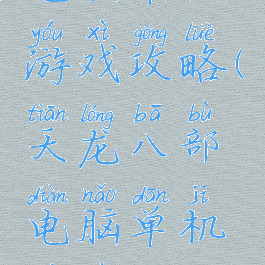 yóu xì gōng lüè
游戏攻略(
tiān lóng bā bù
天龙八部
diàn nǎo dān jī
电脑单机